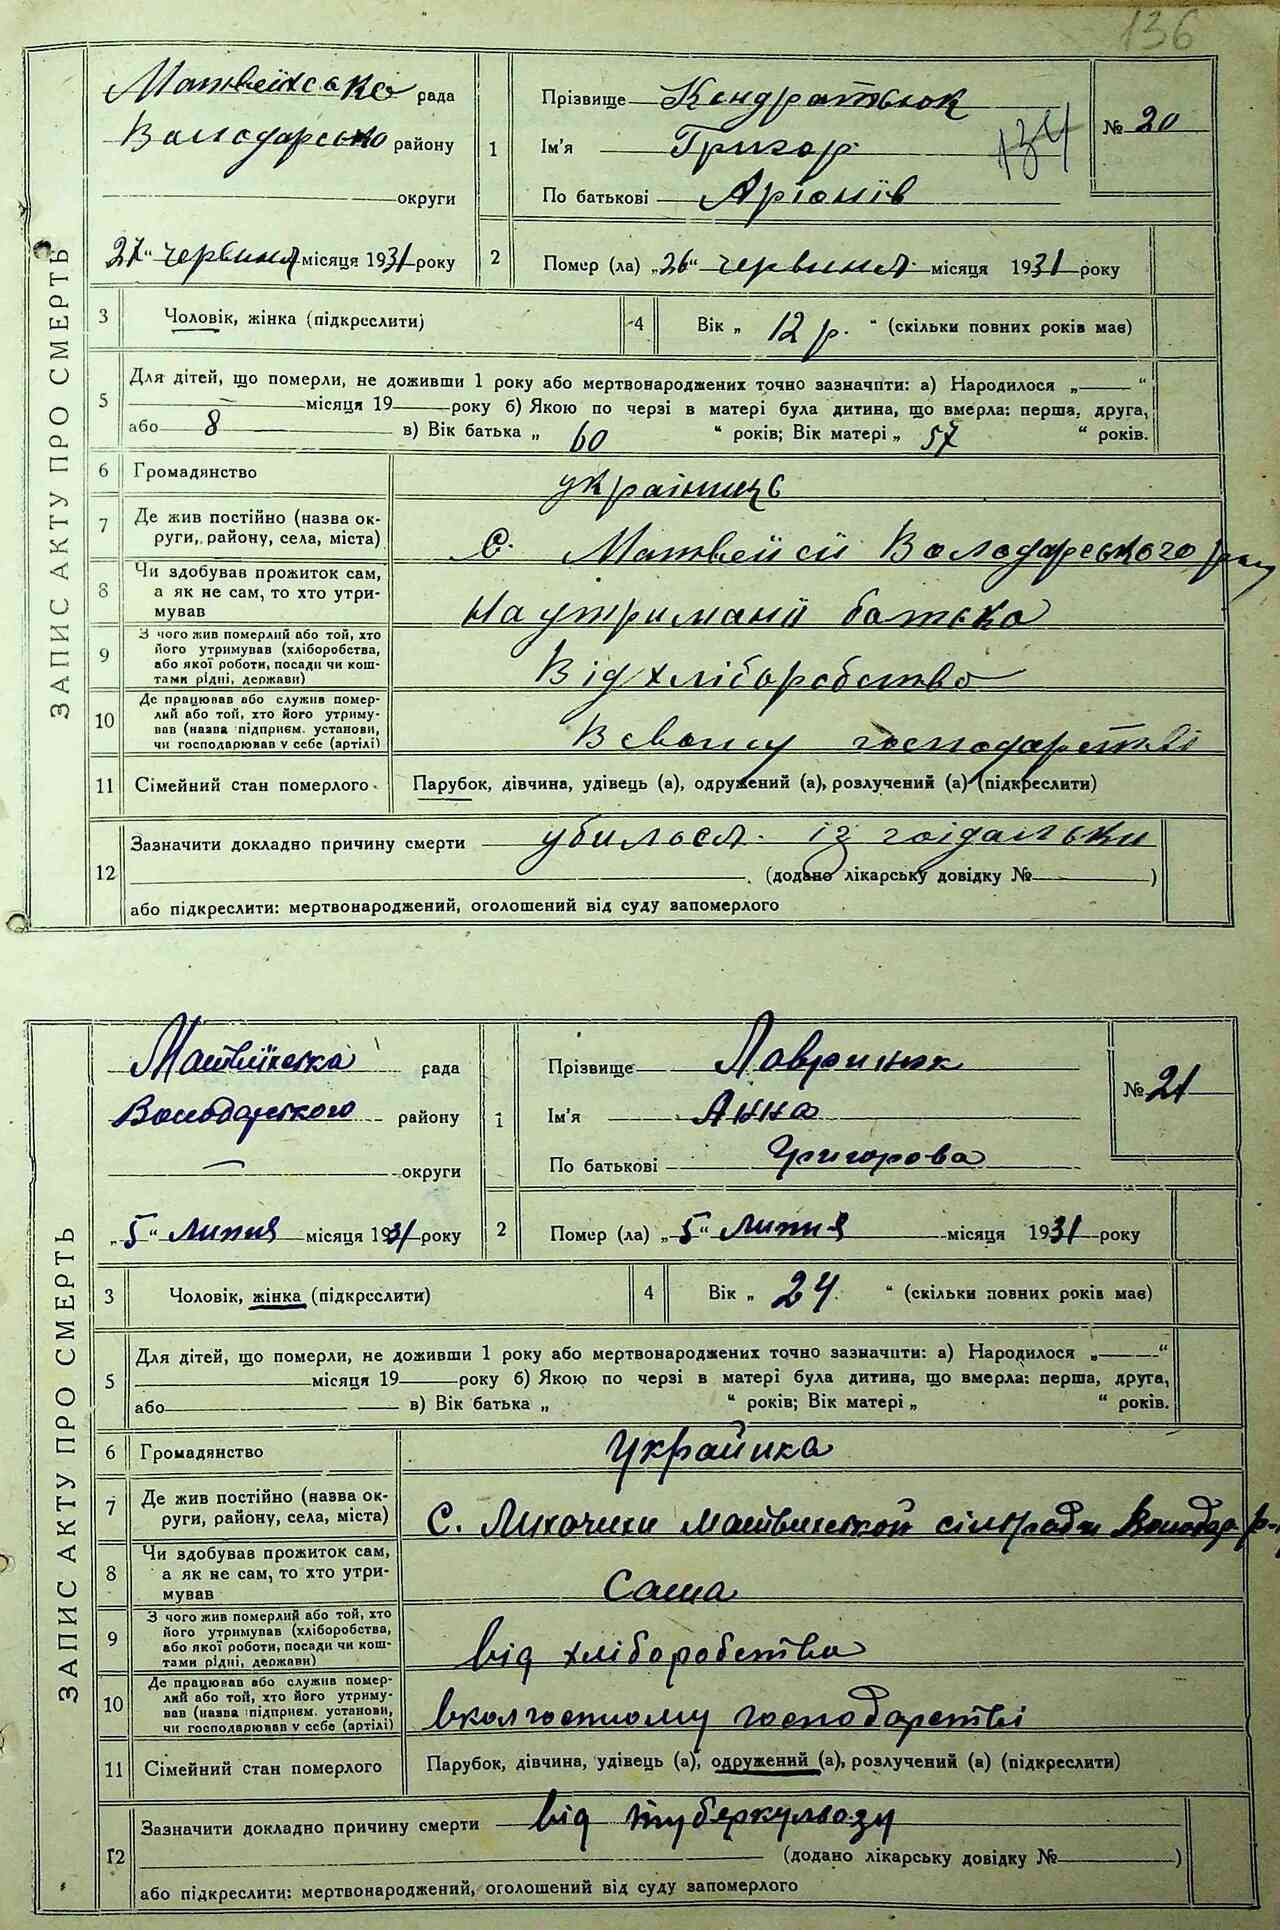 136
ЗАПИС АКТУ ПРО СМЕРТЬ
Матвеїхсько рада
Володарсько району
округи
27 " червиня місяця 1931 року
1
Прізвище Кондратьюк
Ім'я Григор
По батькові Аріонів
134
№ 20
2
Помер (ла) „ 26 " червиня місяця 1931 року
3
Чоловік, жінка (підкреслити)
4
Вік „ 12 р. " (скільки повних років має)
5
Для дітей, що померли, не доживши 1 року або мертвонароджених точно зазначити: а) Народилося „ — "
місяця 19 — року б) Якою по черзі в матері була дитина, що вмерла: перша, друга,
або 8 в) Вік батька „ 60 " років; Вік матері „ 57 " років.
6
Громадянство украінице
7
Де жив постійно (назва ок-
руги, району, села, міста) С. Володарського
8
Чи здобував прожиток сам,
а як не сам, то хто утри-
мував
На утриманії батька
9
З чого жив померлий або той, хто
його утримував (хліборобства,
або якої роботи, посади чи кош-
тами рідні, держави)
Від хліборобство
10
Де працював або служив помер-
лий або той, хто його утриму-
вав (назва підприєм. установи,
чи господарював у себе (артілі)
В своïму господарстві
11
Сімейний стан померлого
Парубок, дівчина, удівець (а), одружений (а), розлучений (а) (підкреслити)
12
Зазначити докладно причину смерти убилься із гоідальки
(додано лікарську довідку № )
або підкреслити: мертвонароджений, оголошений від суду запомерлого
ЗАПИС АКТУ ПРО СМЕРТЬ
Матвіїхська рада
Володарського району
— округи
„ 5 " Липня місяця 1931 року
1
Прізвище Лавринюк
Ім'я Анна
По батькові Григорова
№ 21
2
Помер (ла) „ 5 " Липня місяця 1931 року
3
Чоловік, жінка (підкреслити)
4
Вік „ 24 " (скільки повних років має)
5
Для дітей, що померли, не доживши 1 року або мертвонароджених точно зазначити: а) Народилося „ — "
місяця 19 — року б) Якою по черзі в матері була дитина, що вмерла: перша, друга,
або — в) Вік батька „ " років; Вік матері „ " років.
6
Громадянство Украйинка
7
Де жив постійно (назва ок-
руги, району, села, міста) С. Лихачихи Матвихской сільради Володар р-
8
Чи здобував прожиток сам,
а як не сам, то хто утри-
мував
Сама
9
З чого жив померлий або той, хто
його утримував (хліборобства,
або якої роботи, посади чи кош-
тами рідні, держави)
від хліборобства
10
Де працював або служив помер-
лий або той, хто його утриму-
вав (назва підприєм. установи,
чи господарював у себе (артілі)
вколгоспному господарстві
11
Сімейний стан померлого
Парубок, дівчина, удівець (а), одружений (а), розлучений (а) (підкреслити)
12
Зазначити докладно причину смерти від туберкульозу
(додано лікарську довідку № )
або підкреслити: мертвонароджений, оголошений від суду запомерлого